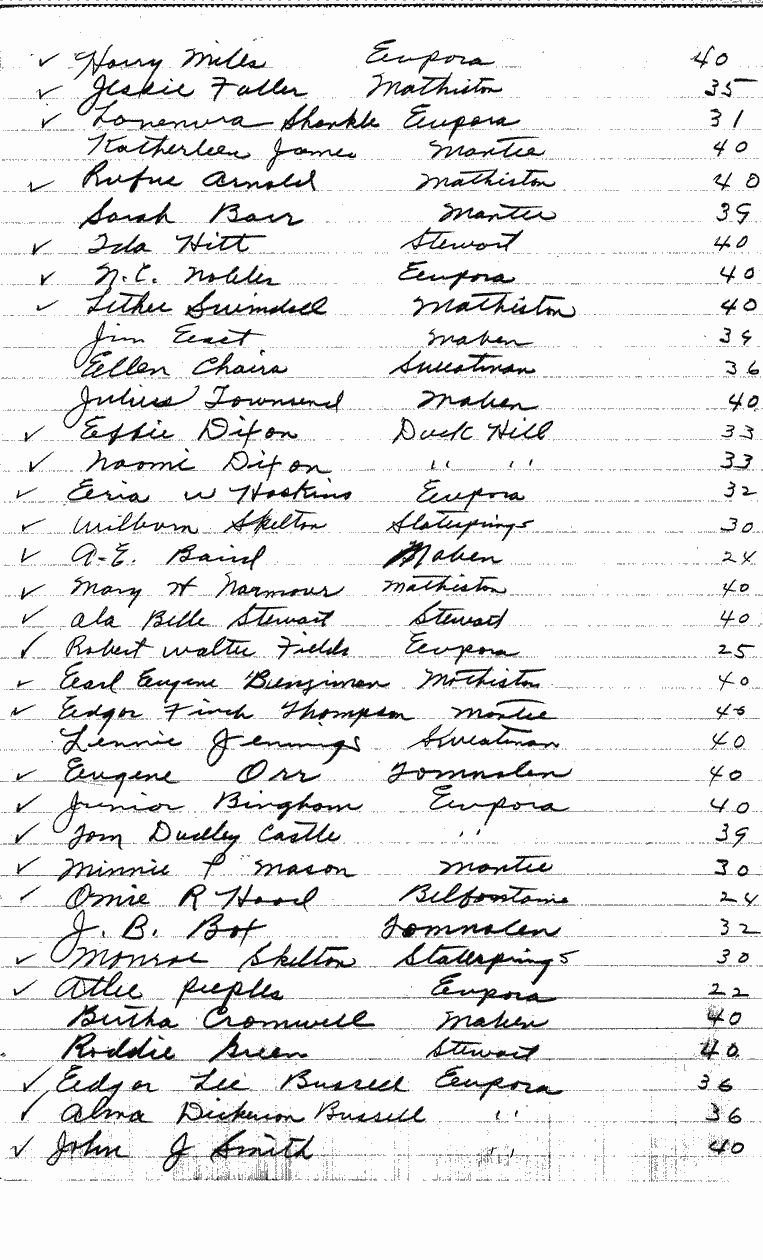 ✓ Harry Mills Eupora 40
✓ Jessie Fuller Mathiston 35
✓ Lonenvra Shankle Eupora 31
Katherleen James Mantee 40
✓ Rufus Arnold Mathiston 40
Sarah Barr Mantee 39
✓ Ida Hitt Stewart 40
✓ N.C. Nobles Eupora 40
✓ Lether Swindoll Mathiston 40
Jim East Maben 39
Ellen Chairs Sweatman 36
Julius Townsend Maben 40
✓ Effie Dixon Duck Hill 33
✓ Naomi Dixon " " 33
✓ Eeria W Hoskins Eupora 32
✓ Wilburn Skelton Slatesprings 30
✓ A-E. Baird Maben 24
✓ Mary H Narmour Mathiston 40
✓ Ala Belle Stewart Stewart 40
✓ Robert Walter Fields Eupora 25
✓ Earl Eugene Benziman Mathiston 40
✓ Edgar Finch Thompson Mantee 40
Lennie Jennings Sweatman 40
✓ Eugene Orr Tomnolen 40
✓ Junior Bingham Eupora 40
✓ Tom Dudley Castle " 39
✓ Minnie P Mason Mantee 30
✓ Omie R Hood Belfontaine 24
J. B. Box Tomnolen 32
✓ Monroe Skelton Slatesprings 30
✓ Atlee Peeples Eupora 22
Bertha Cromwell Maben 40
Roddie Green Stewart 40
✓ Edgar Lee Bussell Eupora 36
✓ Alma Dickerson Bussell " 36
✓ John J Smith " 40